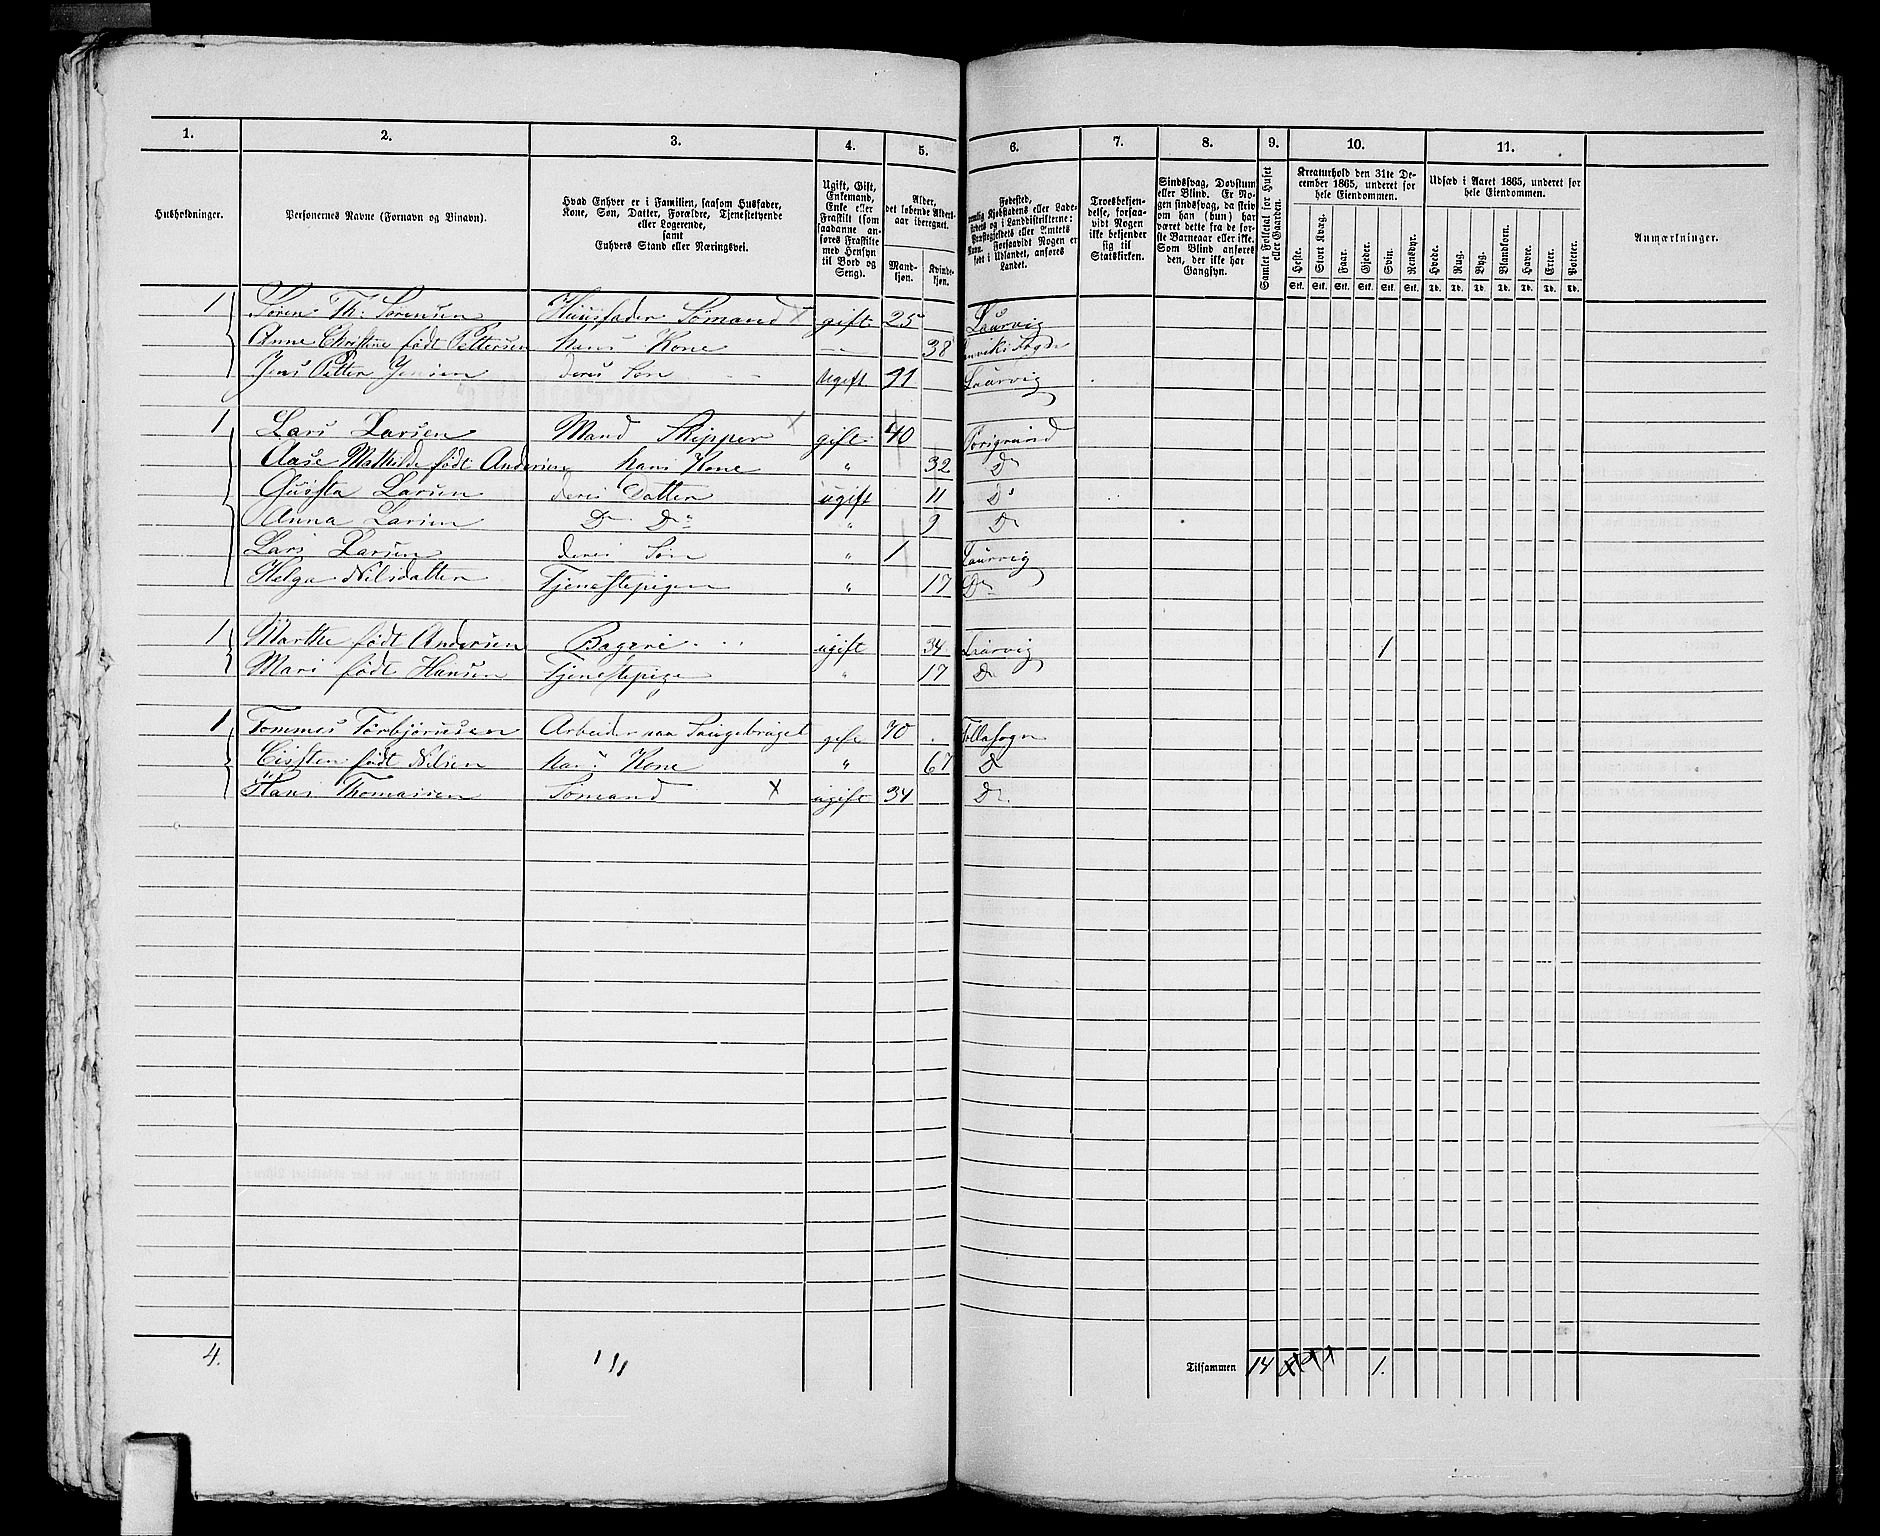 1. 2. 3. 4. 5. 6. 7. 8. 9. 10. 11.
Husholdninger.
Personernes Navne (Fornavn og Tilnavn).
Hvad Enhver er i Familien, saasom Husfader,
Kone, Søn, Datter, Forældre, Tjenestetyende
eller Logerende,
samt
Enhvers Stand eller Næringsvei.
Ugift, Gift,
Enkemand,
Enke eller
Fraskilt (som
saadanne an-
føres Fraskilte
med Hensyn
til Bord og
Seng).
Alder,
det løbende Alders-
aar iberegnet.
Mand-
kjøn.
Kvinde-
kjøn.
Fødested,
Kjøbstadens eller Lade-
stedets og i Landdistrikterne:
Præstegjeldets eller Amtets
Navn. Forsaavidt Nogen er
født i Udlandet, anføres
Landet.
Troesbekjen-
delse, forsaa-
vidt Nogen
ikke bekjender
sig til
Statskirken.
Sindssvag, Døvstum
eller Blind. Er No-
gen sindssvag, da skriv
om han (hun) har
været dette fra de før-
ste Barneaar eller ikke.
Som Blind anføres
den, der ikke har
Gangsyn.
Samlet Folketal for Huset
eller Gaarden.
Kreaturhold den 31te De-
cember 1865, underet for
hele Eiendommen.
Heste. Stort Kvæg. Faar. Gjeder. Svin. Rensdyr.
Stk. Stk. Stk. Stk. Stk. Stk.
Udsæd i Aaret 1865, underet for
hele Eiendommen.
Hvede. Rug. Byg. Blandkorn. Havre. Erter. Poteter.
Td. Td. Td. Td. Td. Td. Td.
Anmærkninger.
1 Søren Th. Sørensen Huusfader Sømand X gift 25 Laurvig
Anne Christine født Pettersen hans Kone 38
Jens Petter Jensen deres Søn ugift 11 Laurvig
1 Lars Larsen Mand Skipper X gift 40 Porsgrund
Aase Mathilde født Andersen hans Kone " 32 Do
Gusta Larsen deres Datter ugift 11 Do
Anna Larsen Do Do " 9 Do
Lars Larsen deres Søn " 1 Laurvig
Helga Nilsdatter Tjenestepigen " 17 Do
1 Marthe født Andersen Bageri ugift 34 Laurvig 1
Mari født Hansen Tjenestepige " 17 Do
1 Tommes Torbjørnsen Arbeider gift 70
født Nilsen hans Kone " 67 Do
Hans Thomassen Sømand X ugift 34 Do
4. Tilsammen 14 1.